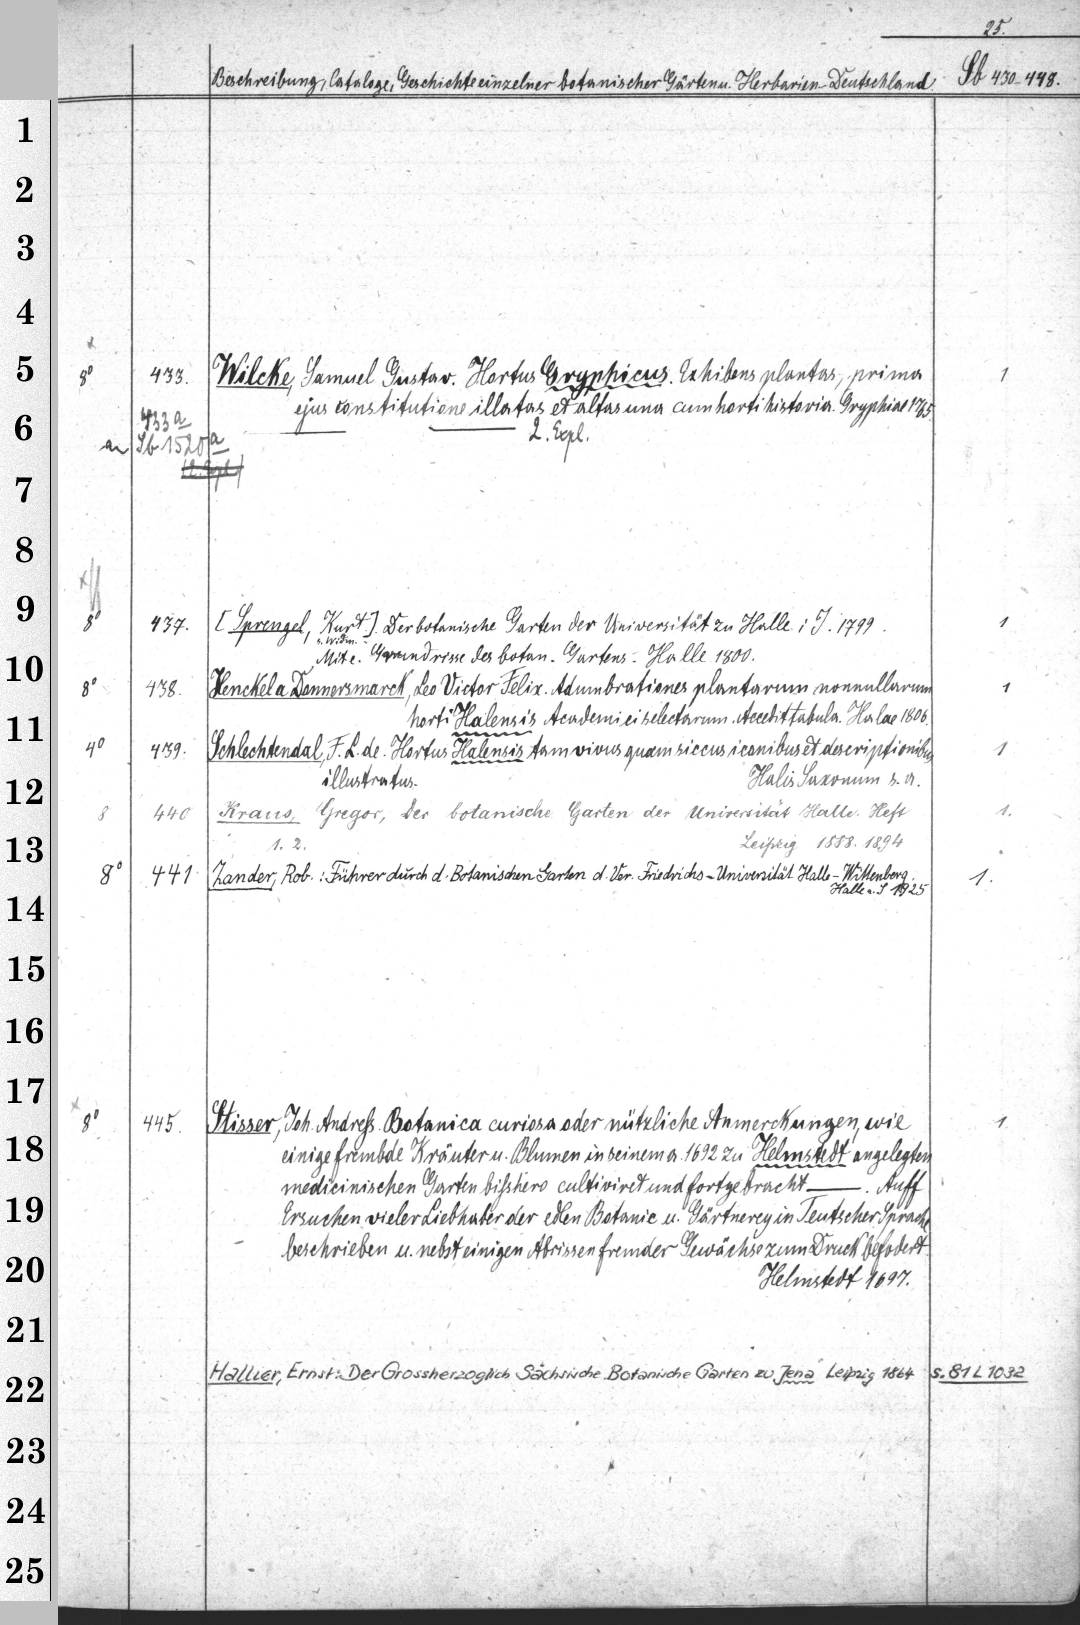 25.
Beschreibung, Cataloge, Geschichte einzelner botanischer Gärten u. Herbarien - Deutschland. Sb 430-448.
1
2
3
4
5
8° 433. Wilcke, Samuel Gustav. Hortus Gryphicus. Exhibens plantas, prima 1
ejus constitutione illatas et altas una cum horti historia. Gryphiae 1765.
6
433a
2. Expl.
an Sb 1520a
(2. Expl.)
7
8
9
8° 437. [Sprengel, Kurt]. Der botanische Garten der Universität zu Halle i. J. 1799. 1
Mit e. Grundrisse des botan. Gartens. Halle 1800.
10
8° 438. Henckel a Donnersmarck, Leo Victor Felix. Adumbrationes plantarum nonnullarum 1
horti Halensis Academici selectarum. Accedit tabula. Halae 1806.
11
4° 439. Schlechtendal, F. L. de. Hortus Halensis tam vivus quam siccus iconibus et descriptionibus 1
illustratus. Halis Saxonum s. a.
12
8 440 Kraus, Gregor, Der botanische Garten der Universität Halle. Heft 1.
1. 2. Leipzig 1888. 1894
13
8° 441 Zander, Rob.: Führer durch d. Botanischen Garten d. Ver. Friedrichs-Universität Halle-Wittenberg. 1.
Halle a. S 1925
14
15
16
17
8° 445. Stisser, Joh. Andreß. Botanica curiosa oder nützliche Anmerckungen, wie 1
18
einige frembde Kräuter u. Blumen in seinem a. 1692 zu Helmstedt angelegten
medicinischen Garten bißhero cultiviret und fortgebracht —. Auff
19
Ersuchen vieler Liebhaber der edlen Botanic u. Gärtnerey in Teutscher Sprache
beschrieben u. nebst einigen Abrissen fremder Gewächse zum Druck befodert.
20
Helmstedt 1697.
21
22
Hallier, Ernst: Der Grossherzoglich Sächsische Botanische Garten zu Jena Leipzig 1864 s. 81 L 1032
23
24
25